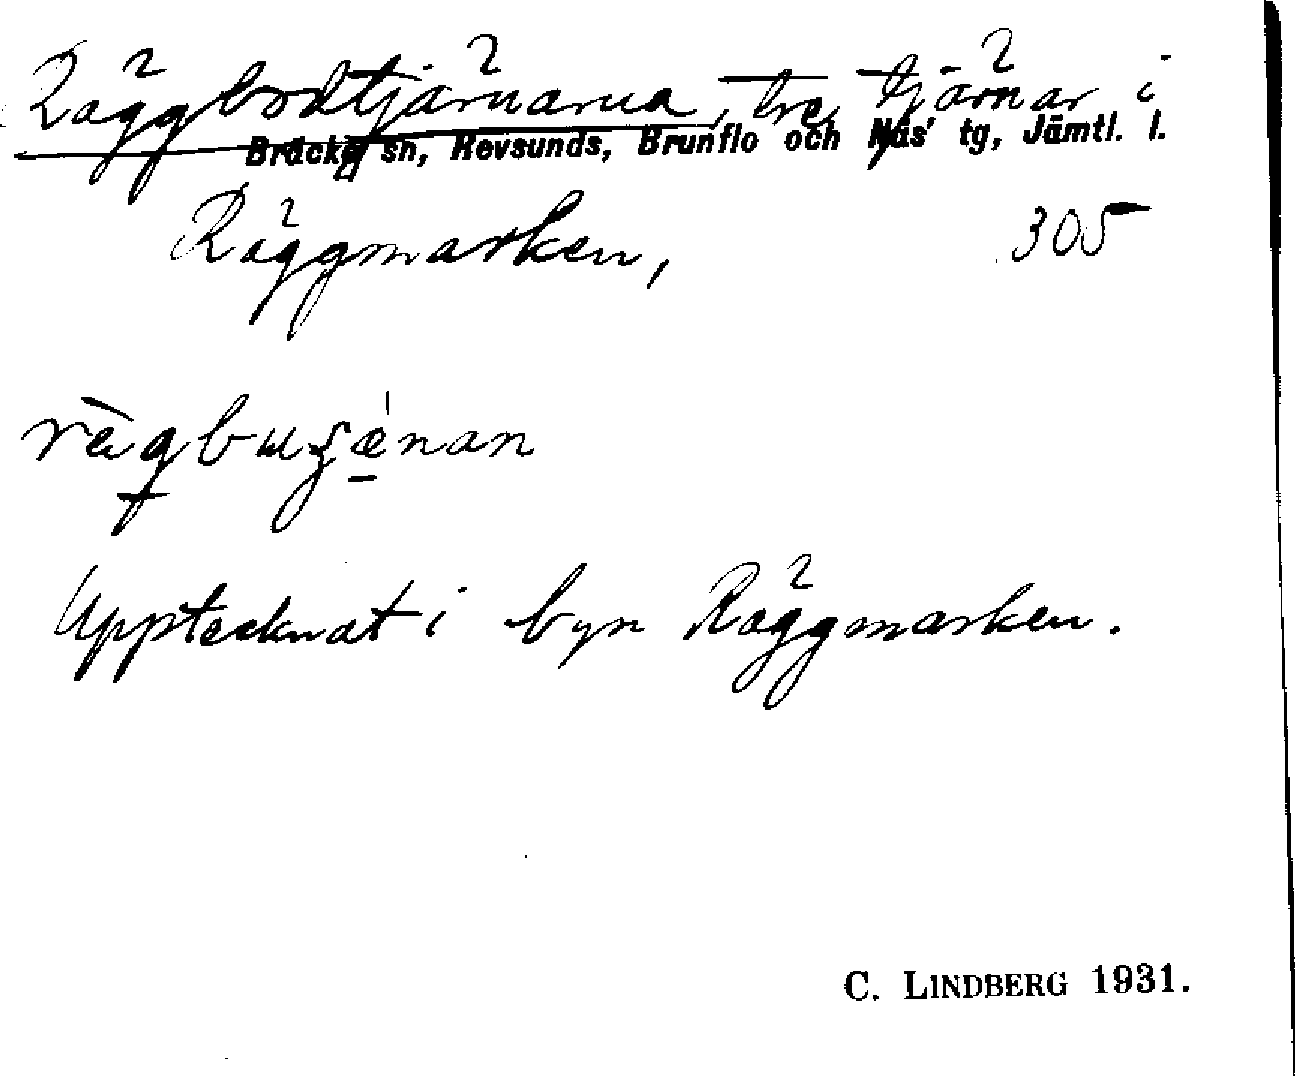 Räggbodtjärnarna, tre tjärnar i
Bräcke sn, Revsunds, Brunflo och Näs' tg, Jämtl. l.
Räggmarken, 305
Upptecknat i byn Räggmarken.
C. LINDBERG 1931.